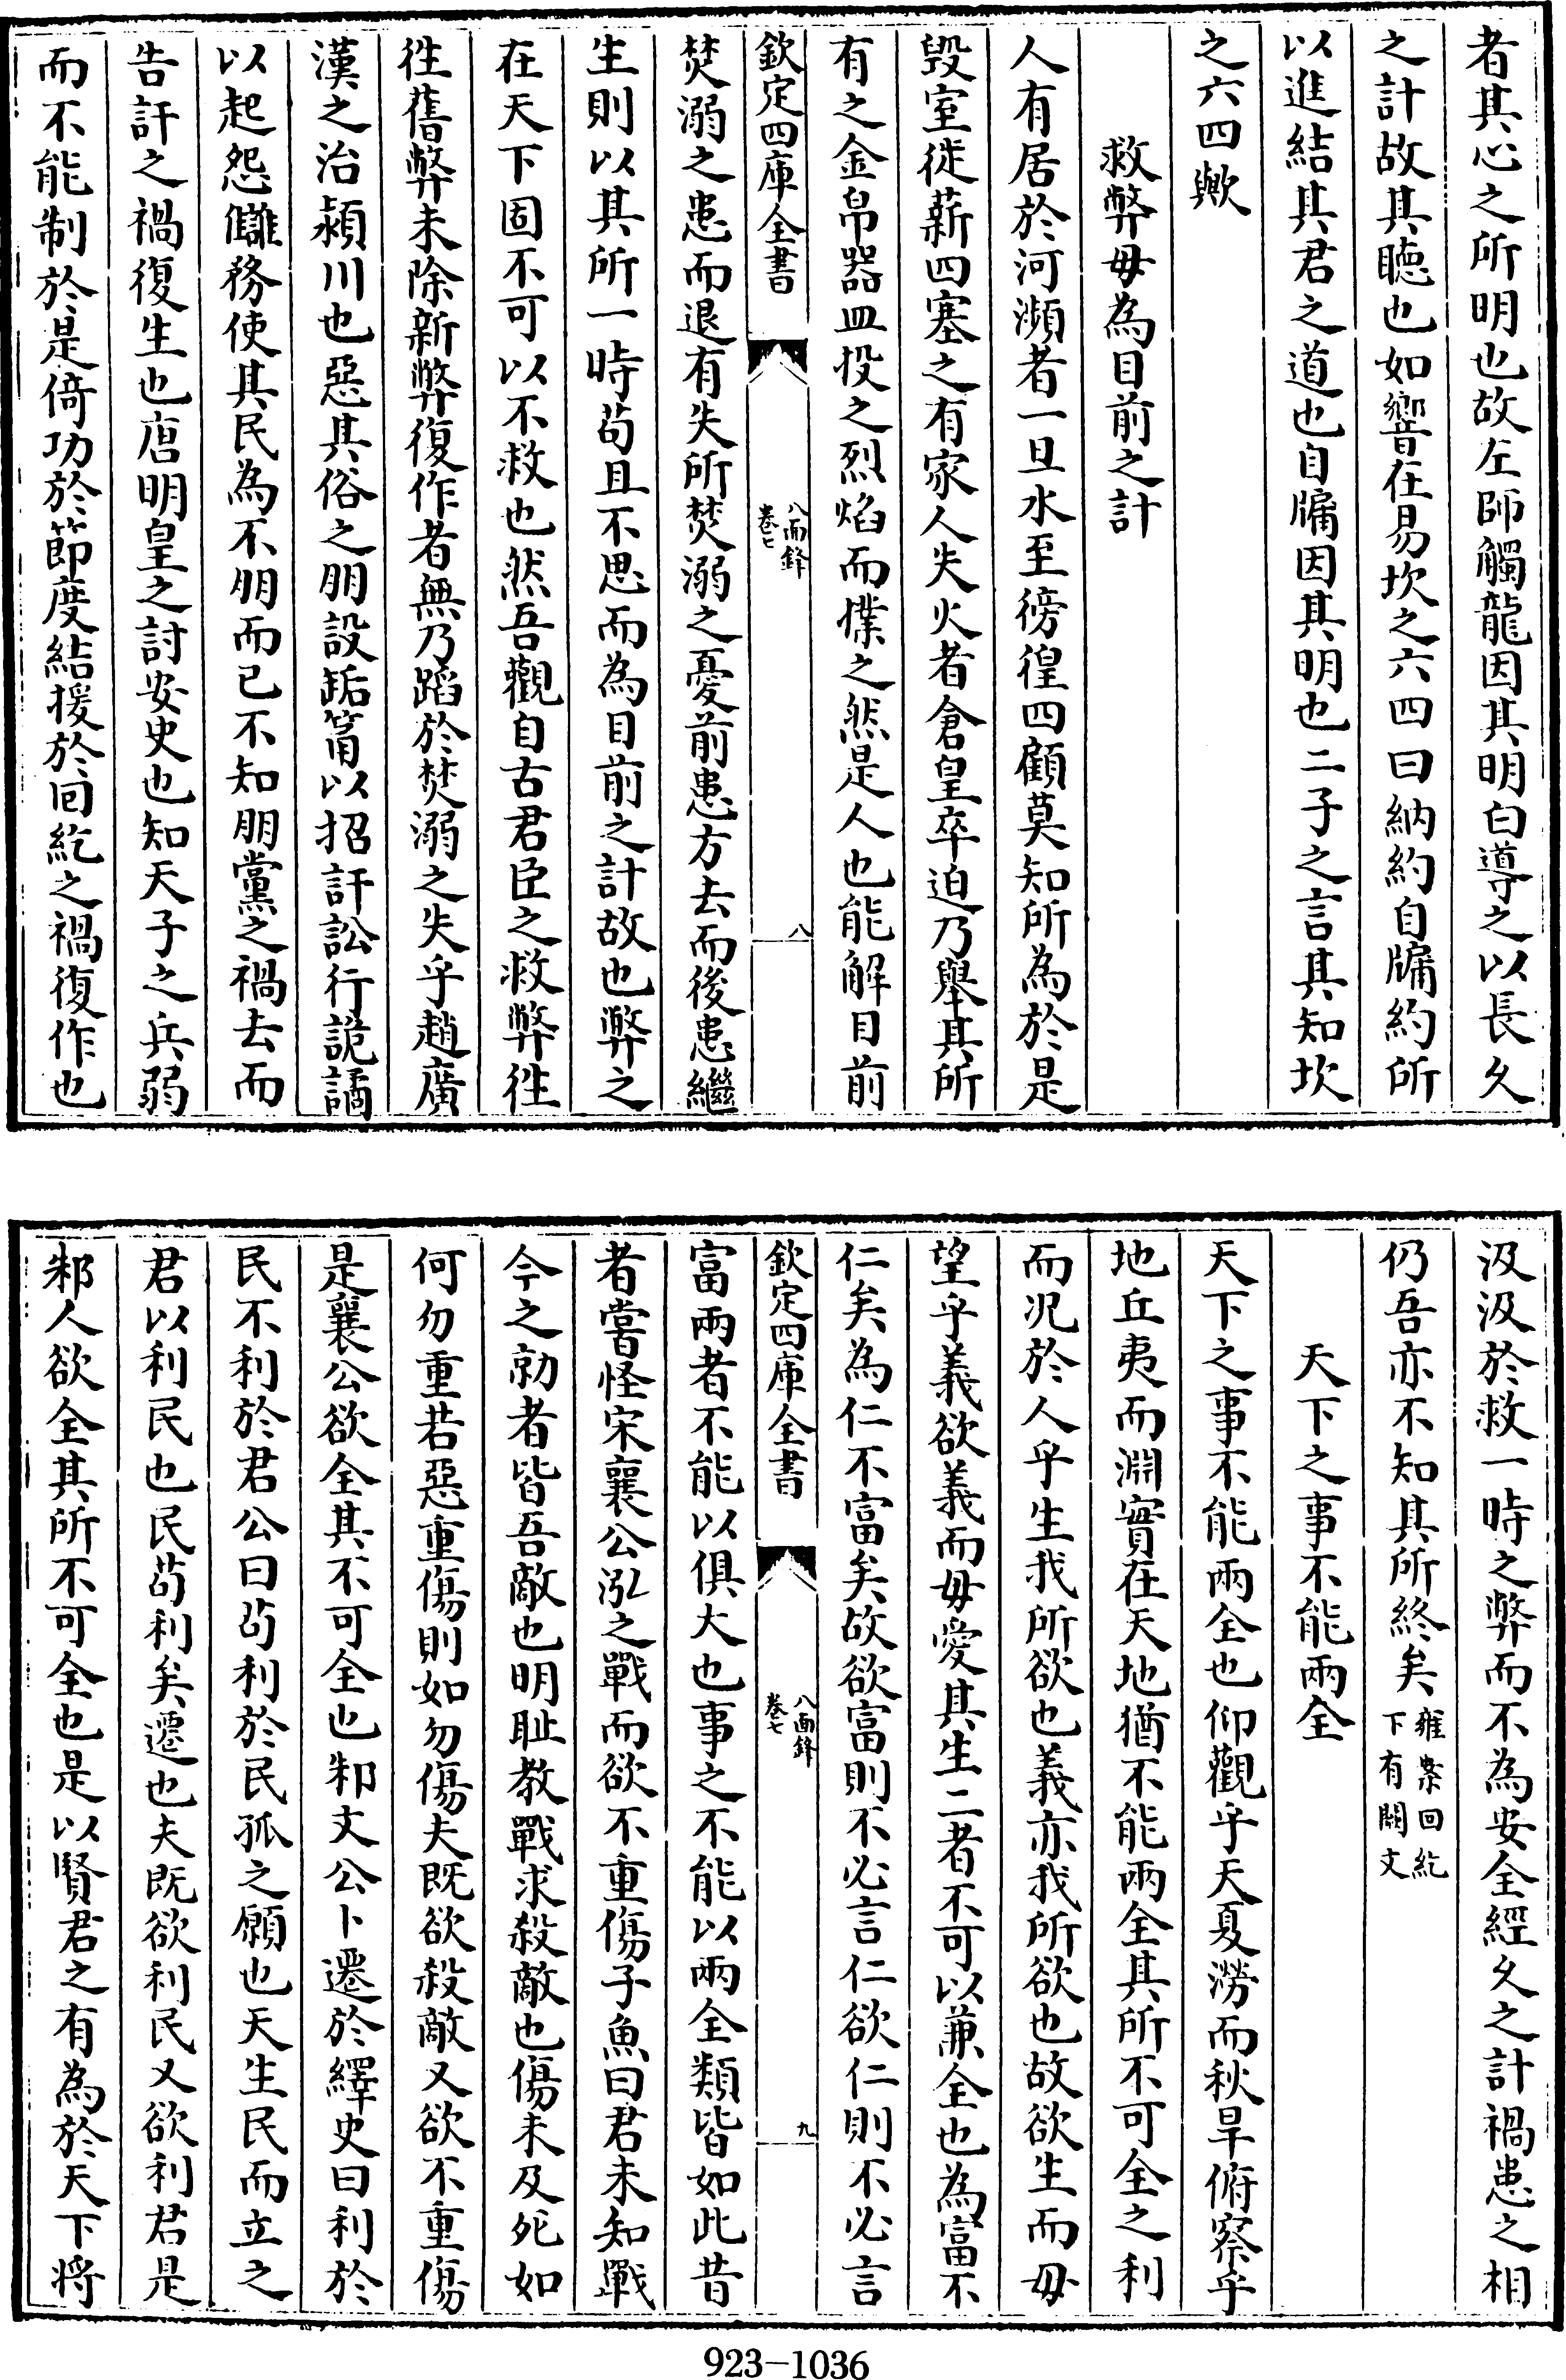 者其心之所明也故左師觸龍因其明白導之以長久
之計故其聽也如響在易坎之六四曰納約自牖約所
以進結其君之道也自牖因其明也二子之言其知坎
之六四歟
救弊毋為目前之計
人有居於河瀕者一旦水至徬徨四顧莫知所為於是
毀室徙薪四塞之有家人失火者倉皇卒迫乃舉其所
有之金帛器皿投之烈焰而撲之然是人也能解目前
欽定四庫全書
八面鋒
卷七
八
焚溺之患而退有失所焚溺之憂前患方去而後患繼
生則以其所一時苟且不思而為目前之計故也弊之
在天下固不可以不救也然吾觀自古君臣之救弊徃
徃舊弊未除新弊復作者無乃蹈於焚溺之失乎趙廣
漢之治潁川也惡其俗之朋設缿筩以招訐訟行詭譎
以起怨讎務使其民為不朋而已不知朋黨之禍去而
告訐之禍復生也唐明皇之討安史也知天子之兵弱
而不能制於是倚功於節度結援於回紇之禍復作也
汲汲於救一時之弊而不為安全經久之計禍患之相
仍吾亦不知其所終矣雍案回紇
下有闕文
天下之事不能兩全
天下之事不能兩全也仰觀乎天夏澇而秋旱俯察乎
地丘夷而淵實在天地猶不能兩全其所不可全之利
而况於人乎生我所欲也義亦我所欲也故欲生而毋
望乎義欲義而毋愛其生二者不可以兼全也為富不
仁矣為仁不富矣故欲富則不必言仁欲仁則不必言
欽定四庫全書
八面鋒
卷七
九
富兩者不能以俱大也事之不能以兩全類皆如此昔
者嘗怪宋襄公泓之戰而欲不重傷子魚曰君未知戰
今之勍者皆吾敵也明耻教戰求殺敵也傷未及死如
何勿重若惡重傷則如勿傷夫既欲殺敵又欲不重傷
是襄公欲全其不可全也邾文公卜遷於繹史曰利於
民不利於君公曰苟利於民孤之願也天生民而立之
君以利民也民苟利矣遷也夫既欲利民又欲利君是
邾人欲全其所不可全也是以賢君之有為於天下将
923-1036